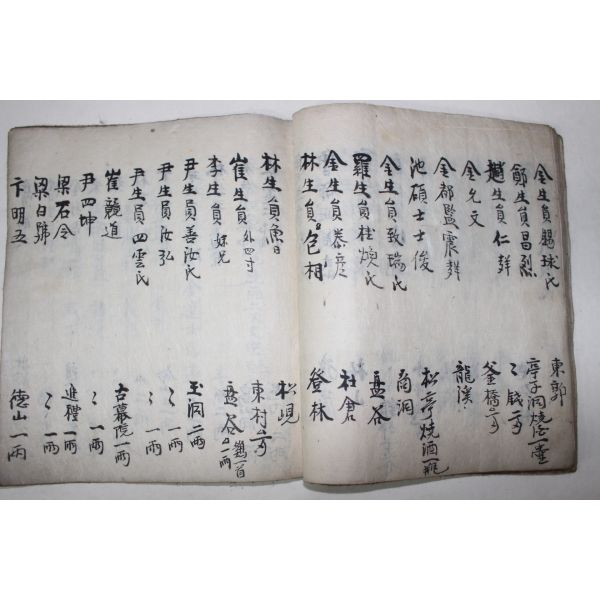 金生員賜球氏 東部
鄭生員昌烈 亭子洞燒酒一壺
趙生員仁群 〻 錢一兩
金允文 釜橋一兩
金都監震群 龍溪
池碩士士俊 松亭燒酒一瓶
金生員致瑞氏 商洞
羅生員桂煥氏 盘谷
金生員泰彦 社倉
林生員 相 登林
林生員魯 松峴
崔生員外四寸 東村一兩
李生員妹兄 盘谷 鷄一首 一兩
尹生員善汝氏 玉洞二兩
尹生員汝弘 〻 一兩
尹生員四雲氏 〻 一兩
崔競道 古幕院一兩
尹四坤 〻 一兩
梁石令 進禮一兩
梁日號 〻 一兩
卞明五 德山一兩